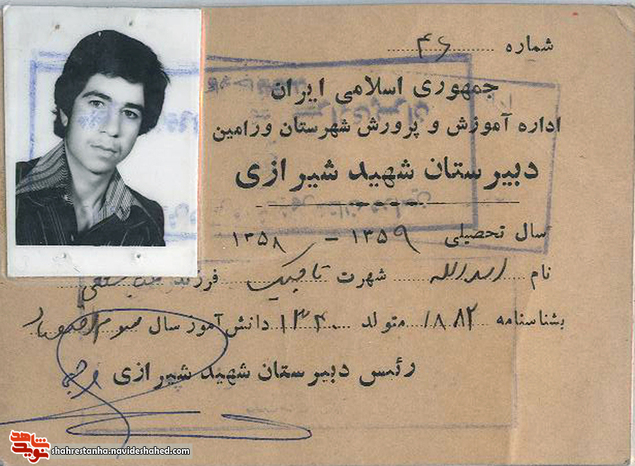 شماره ۴۶
جمهوری اسلامی ایران
اداره آموزش و پرورش شهرستان ورامین
دبیرستان شهید شیرازی
سال تحصیلی ۱۳۵۹ - ۱۳۵۸
نام اسدالله شهرت تاجیک فرزند
بشناسنامه ۱۸۸۲ متولد ۱۳۴۰ دانش آموز سال سوم اقتصاد
رئیس دبیرستان شهید شیرازی
نوید شاهد
shahrestanha.navideshahed.com